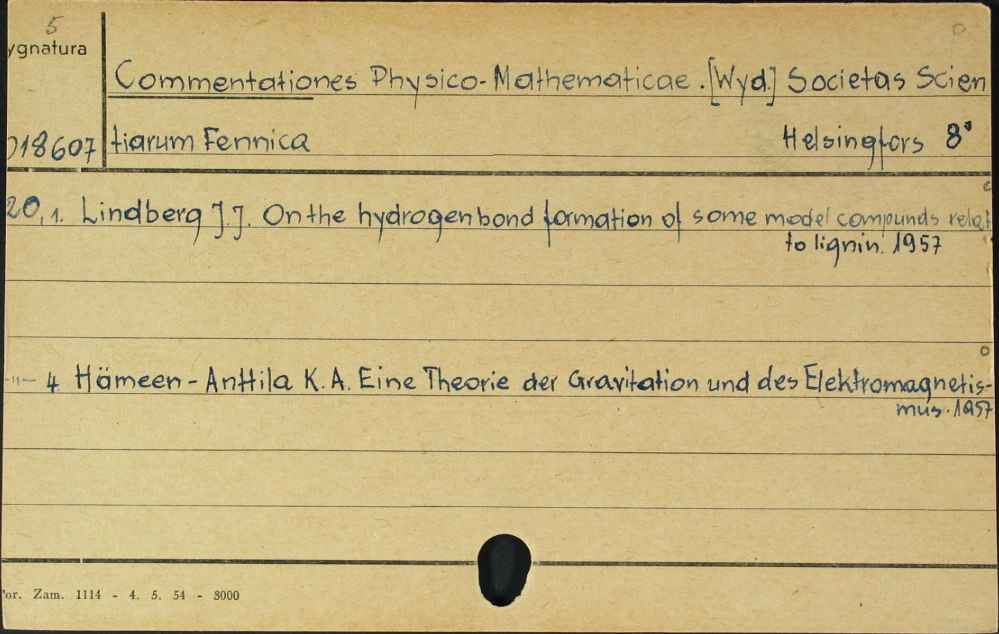 5
ygnatura
Commentationes Physico-Mathematicae. [Wyd.] Societas Scien
018607 tiarum Fennica Helsingfors 8°
20, 1. Lindberg J.J. On the hydrogen bond formation of some model compunds relat
to lignin. 1957
-"- 4 Hämeen-Anttila K.A. Eine Theorie der Gravitation und des Elektromagnetis-
mus. 1957
or. Zam. 1114 - 4. 5. 54 - 3000